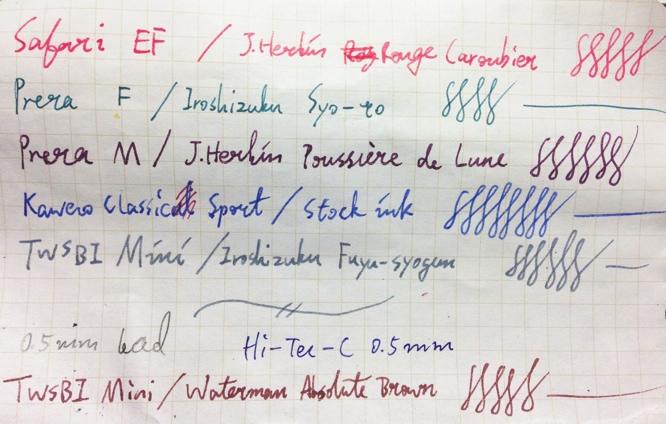 Safari EF / J.Herbin Rouge Caroubier
Prera F / Iroshizuku Syo-ro
Prera M / J.Herbin Poussière de Lune
Kaweco Classic Sport / Stock ink
TWSBI Mini / Iroshizuku Fuyu-syogun
0.5mm lead Hi-Tec-C 0.5mm
TWSBI Mini / Waterman Absolute Brown